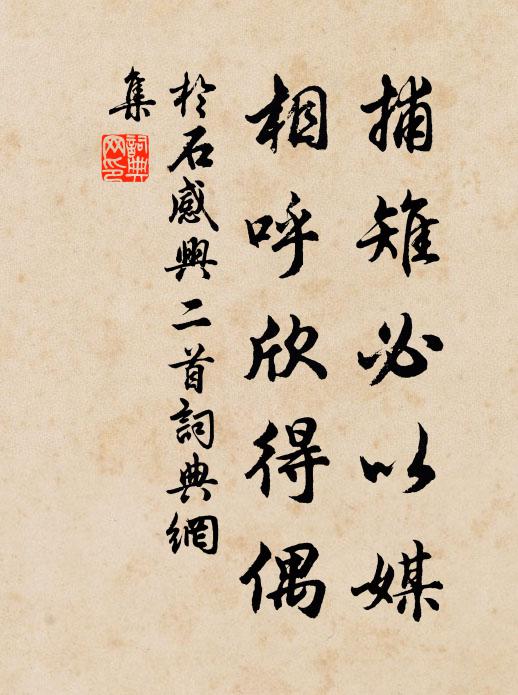 捕雉必以媒
相呼欣得偶
於石感興二首詞典網
集
詞典
网印